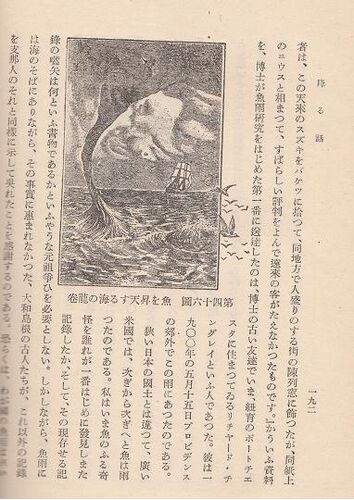 降る話
一九二
者は、この天来のスズキをバケツに拾つて、同地方で人盛りのする街の陳列窓に飾つたが、同紙上
のニウスと相まつて、すばらしい評判をよんで遠来の客がたえなかつたものです。』かういふ資料
を、博士が魚雨研究をはじめた第一番に送達したのは、博士の古い友達でいま、紐育のポートチェ
スタに住まつてゐるリチヤード・チ
ングレイといふ人であつた。彼は一
九〇〇年の五月十五日プロビデンス
の郊外でこの雨にあつたのである。
狭い日本の國土とは違つて、廣い
米國では、次ぎから次ぎへと魚は雨
つたのである。私はいま魚のふる奇
怪を誰れが一番はじめに發見しまた
記録したか、そして、その現存せる記
第四十六圖 魚を昇天する海の龍卷
錄の嚆矢は何といふ書物であるかといふやうな元祖爭ひを必要としない。しかしながら、魚雨に
は海のそばにありながら、その事實に惠まれなかつた、大和島根の古人たちが、これ以外の記錄
を支那人のそれと同樣に示して吳れたことを感謝するのである。恐らくは、わが國の魚雨は